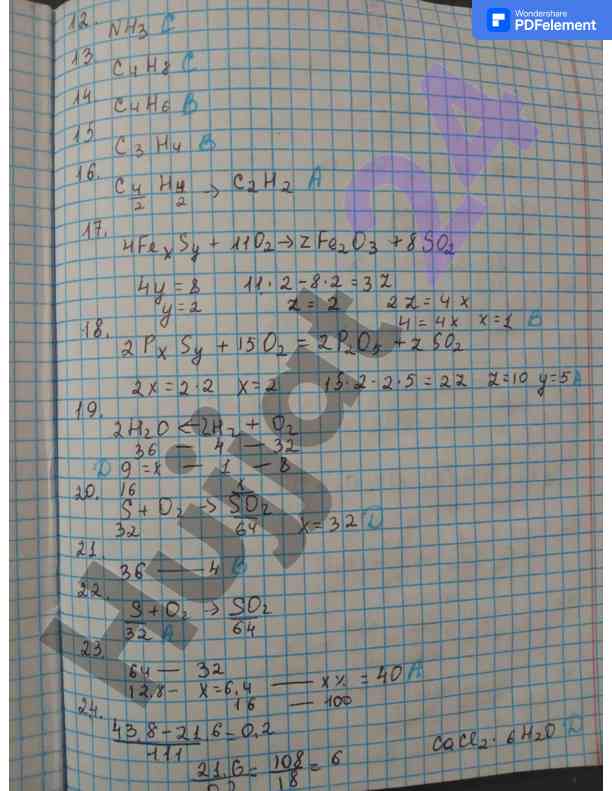 Wondershare
PDFelement
12. NH3 C
13. C4H8 C
14. C4H6 B
15. C3H4 B
16. C4/2 H4/2 → C2H2 A
17. 4FexSy + 11O2 → zFe2O3 + 8SO2
4y = 8 11·2 - 8·2 = 3z
y = 2 z = 2 2z = 4x
4 = 4x x = 1 B
18. 2PxSy + 15O2 = 2P2O5 + zSO2
2x = 2·2 x = 2 15·2 - 2·5 = 2z z = 10 y = 5 A
19. 2H2O ← 2H2 + O2
36 — 4 — 32
D 9 = x — 1 — 8
20. 16 x
S + O2 → SO2
32 64 x = 32 D
21.
36 — 4 B
22.
S + O2 → SO2
32 A 64
23.
64 — 32
12.8 - x = 6.4 — x% = 40 A
16 — 100
24.
43,8 - 21,6 = 0,2
111 CaCl2·6H2O D
21,6 = 108 = 6
18
Hujjat 24